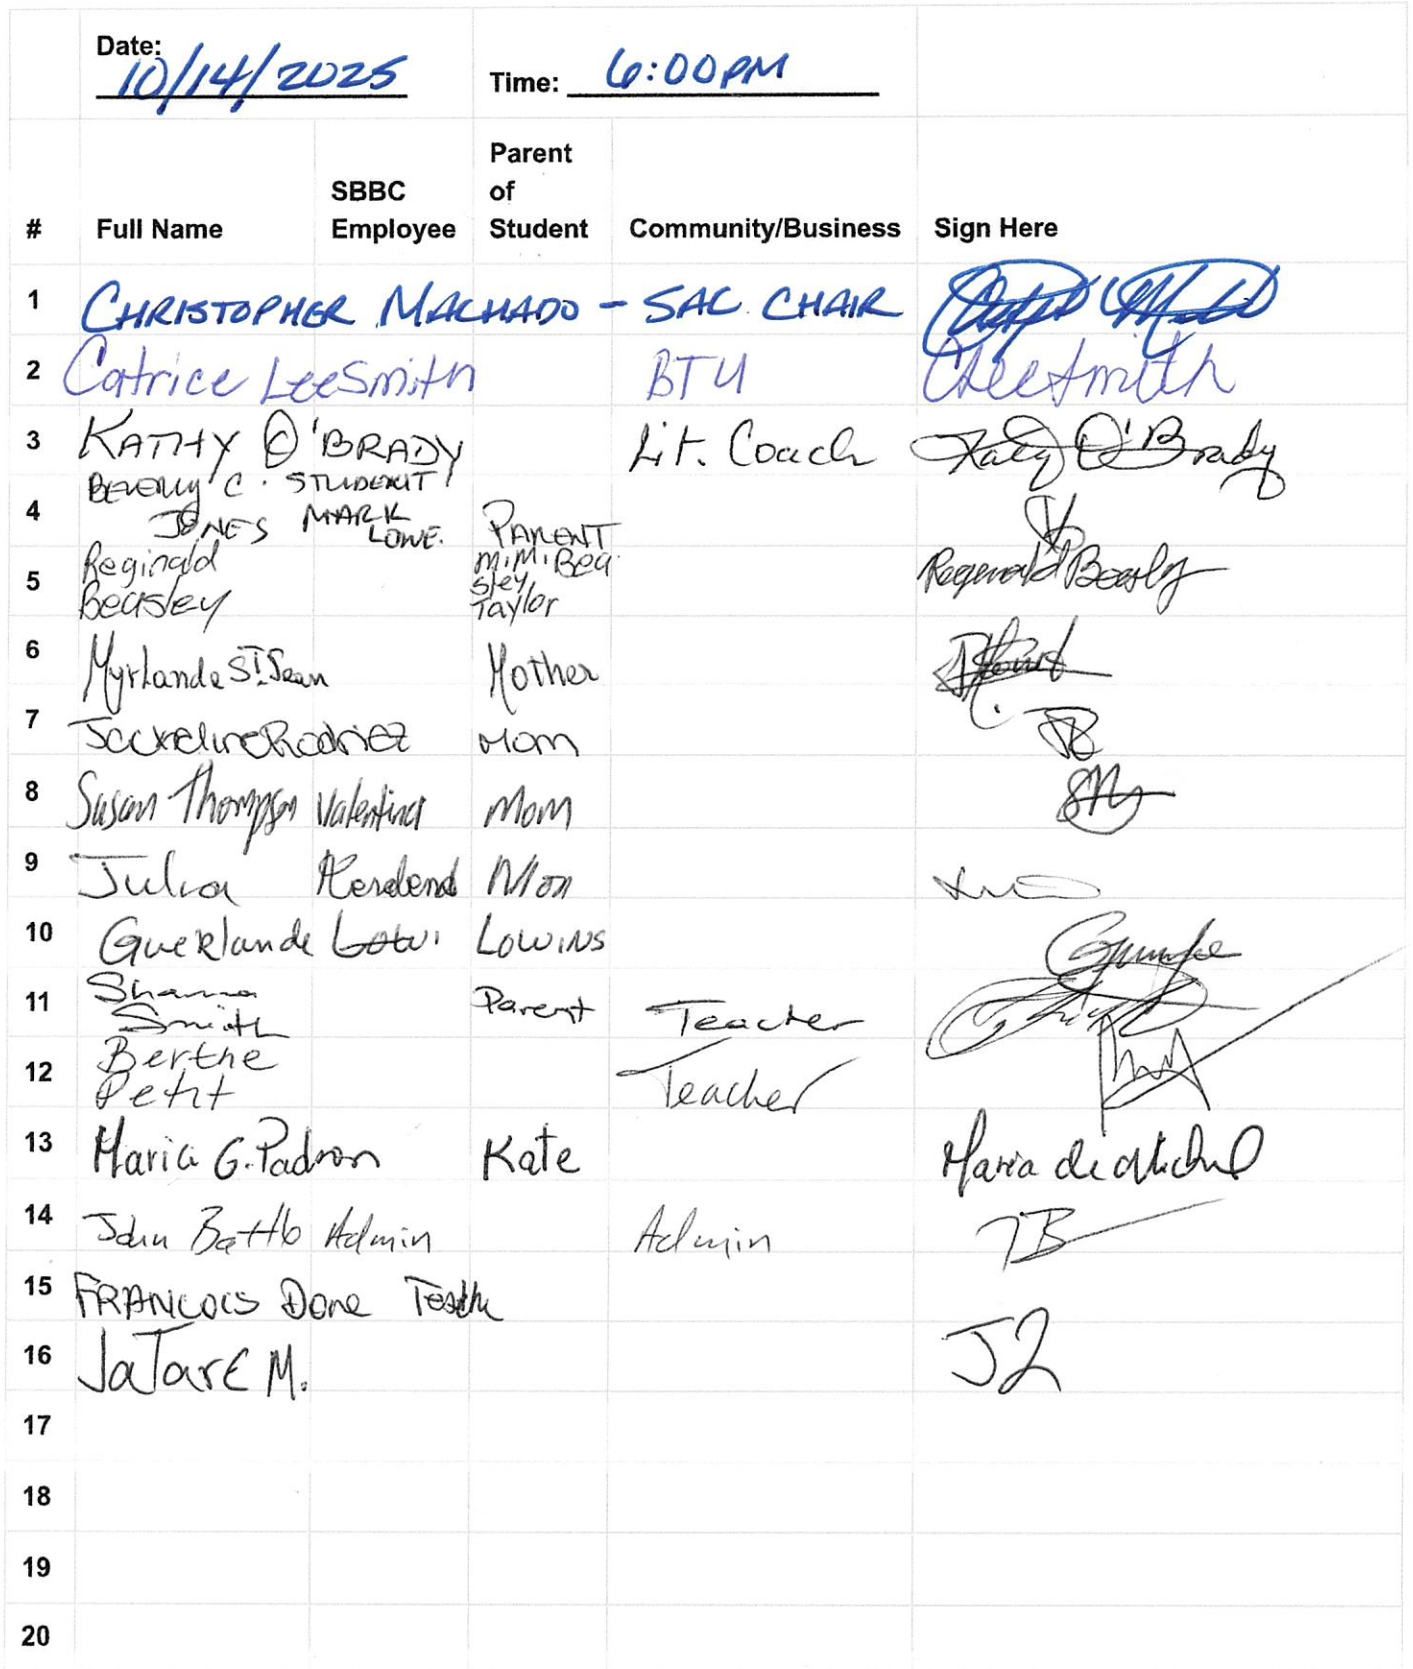 Date: 10/14/2025 Time: 6:00PM
# Full Name SBBC Employee Parent of Student Community/Business Sign Here
1 CHRISTOPHER MACHADO - SAC CHAIR
2 Catrice LeeSmith BTU CLeeSmith
3 KATHY O'BRADY Lit. Coach Kathy O'Brady
BEVERLY C. STUDENT
4 JONES MARK LOWE. PARENT
5 Reginald Beasley M.M. Beasley Taylor Reginald Beasley
6 Myrlande St. Jean Mother
7 Mom
8 Susan Thompson Valentina Mom
9 Julia Mom
10 Guerlande LOWINS
11 Shanna Smith Parent Teacher
12 Berthe Petit Teacher
13 Maria G. Padron Kate Maria de
14 John Battle Admin Admin JB
15 FRANCOIS Done
16 JaTarE M.
17
18
19
20